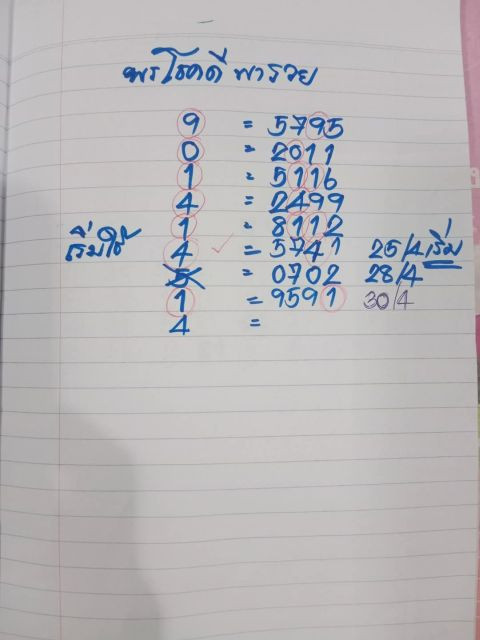 พรโชคดี พารวย
9 = 5795
0 = 2011
1 = 5116
4 = 2499
1 = 8112
เริ่มใช้ 4 = 5741 25/4 เริ่ม
5 = 0702 28/4
1 = 9591 30/4
4 =